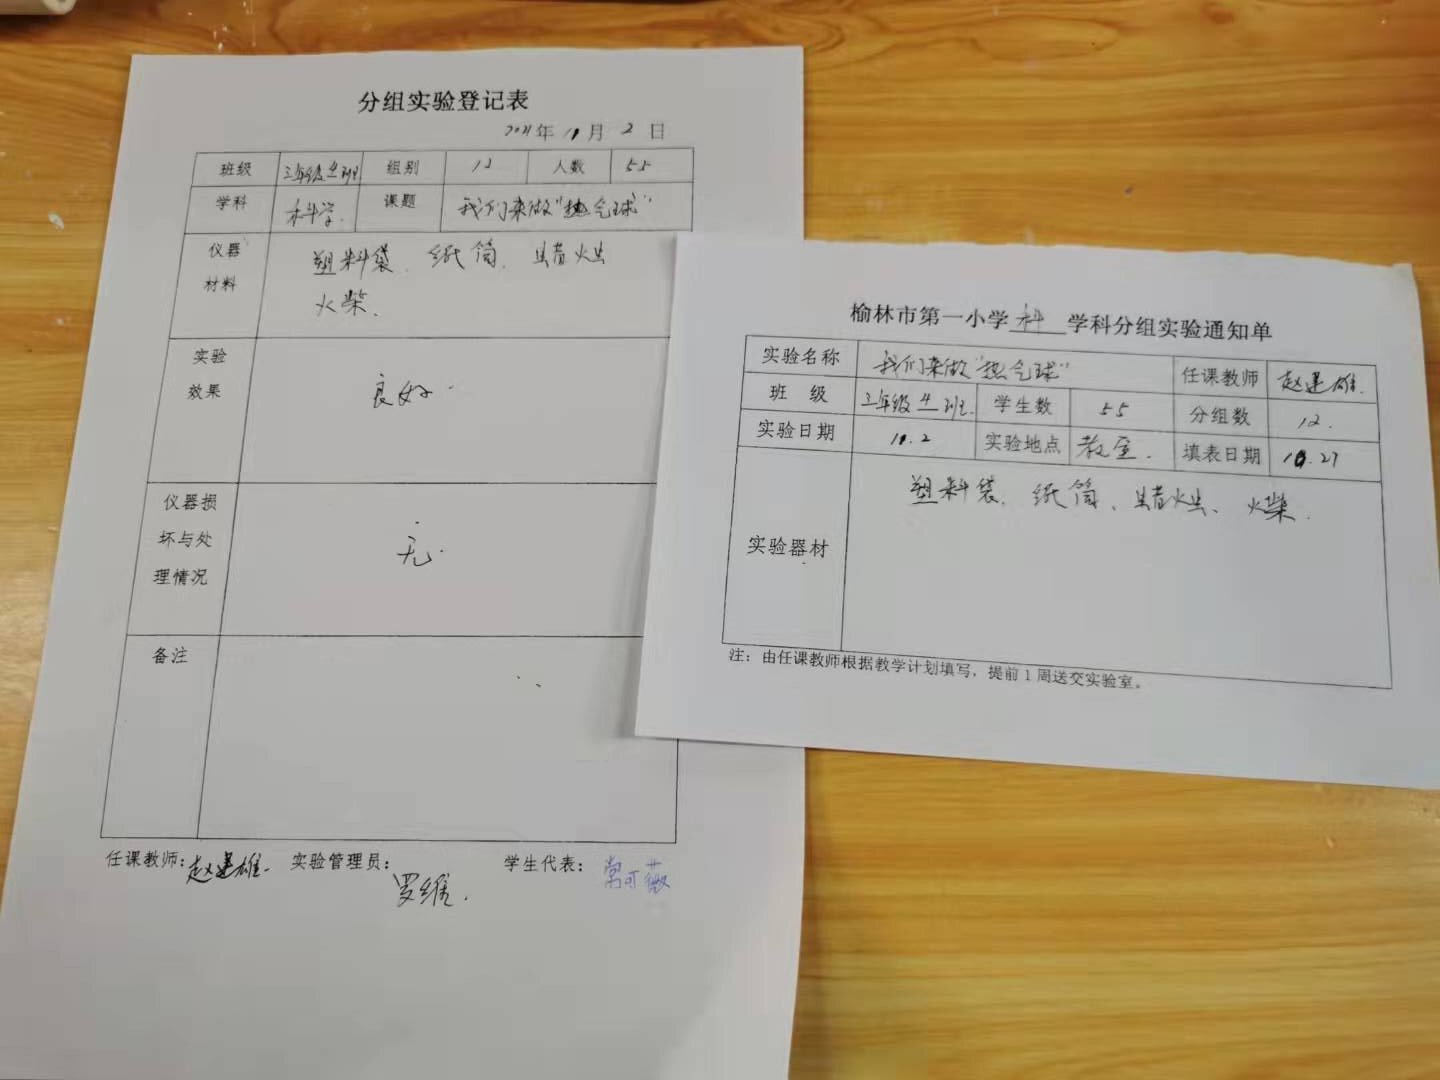 分组实验登记表
2021年 11月 2日
班级 三年级4班 组别 12 人数 55
学科 科学. 课题 我们来做"热气球"
仪器材料 塑料袋、纸筒、蜡烛
火柴、
实验效果 良好.
仪器损坏与处理情况 无.
备注
任课教师:赵建雄. 实验管理员: 罗维. 学生代表: 常可薇
榆林市第一小学 科 学科分组实验通知单
实验名称 我们来做"热气球" 任课教师 赵建雄.
班 级 三年级4班. 学生数 55 分组数 12.
实验日期 11.2 实验地点 教室. 填表日期 10.27
实验器材 塑料袋、纸筒、蜡烛、火柴.
注：由任课教师根据教学计划填写，提前1周送交实验室。